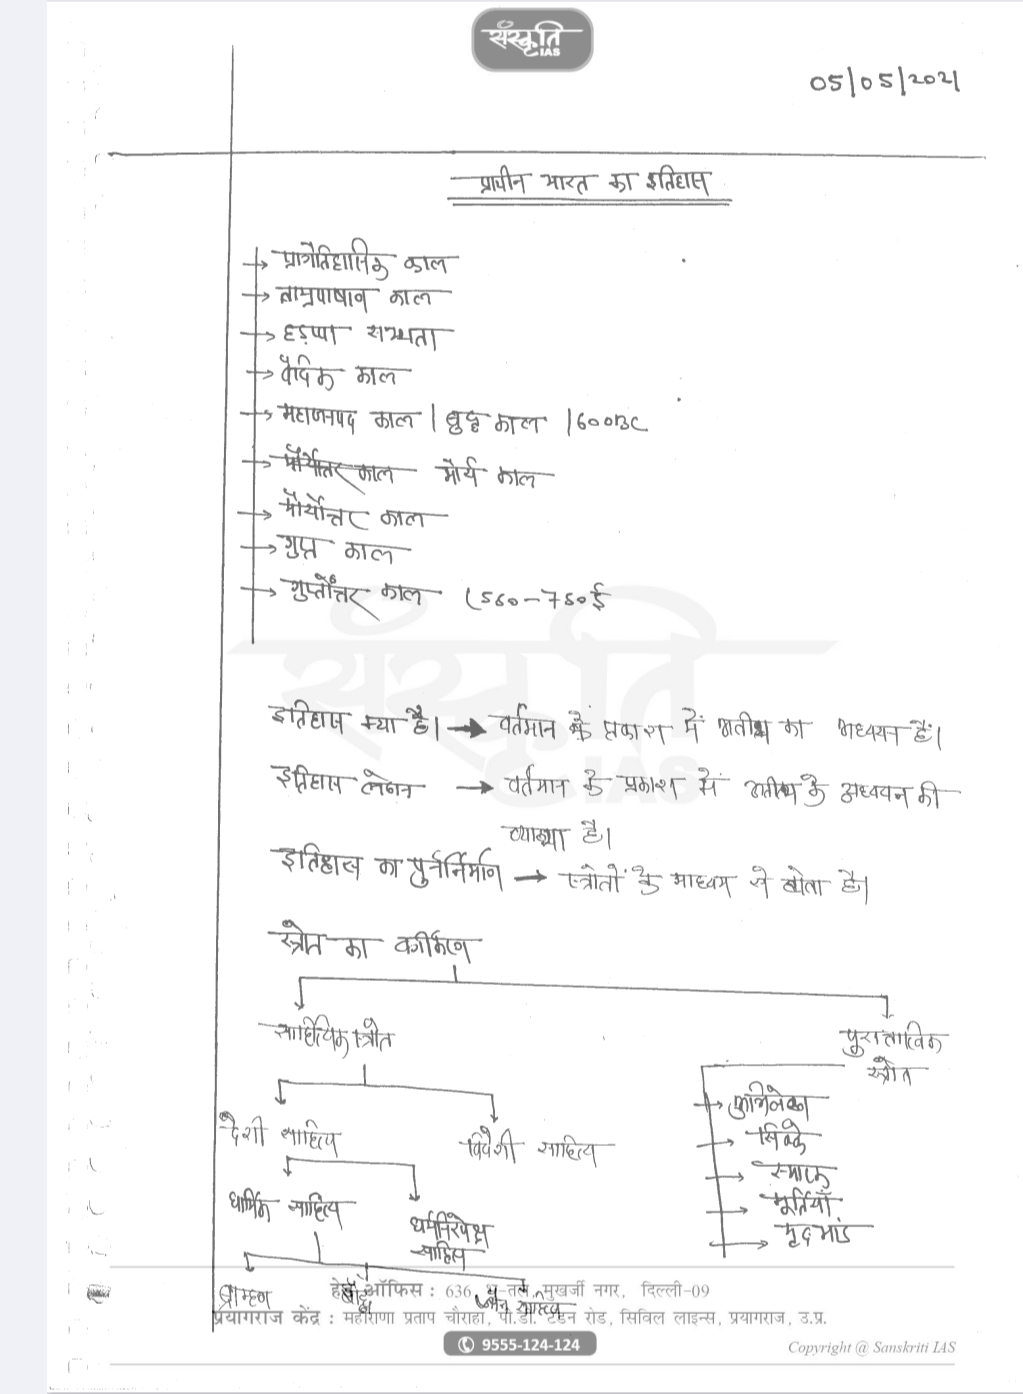 संस्कृति
IAS
05/05/2021
प्राचीन भारत का इतिहास
→ प्रागैतिहासिक काल
→ ताम्रपाषाण काल
→ हड़प्पा सभ्यता
→ वैदिक काल
→ महाजनपद काल / बुद्ध काल / 600BC
→ मौर्योत्तर काल मौर्य काल
→ मौर्योत्तर काल
→ गुप्त काल
→ गुप्तोत्तर काल (550-750ई
इतिहास क्या है। → वर्तमान के प्रकाश में अतीत का अध्ययन है।
इतिहास लेखन → वर्तमान के प्रकाश में अतीत के अध्ययन की
व्याख्या है।
इतिहास का पुर्ननिर्माण → स्त्रोतों के माध्यम से होता है।
स्त्रोत का वर्गीकरण
साहित्यिक स्त्रोत
पुरातात्विक
स्त्रोत
देशी साहित्य
विदेशी साहित्य
→ अभिलेख
→ सिक्के
→ स्मारक
→ मूर्तियाँ
→ मृदभांड
धार्मिक साहित्य
धर्मनिरपेक्ष
साहित्य
ब्राम्हण
बौद्ध
जैन साहित्य
हेड ऑफिस : 636, भू-तल, मुखर्जी नगर, दिल्ली-09
प्रयागराज केंद्र : महाराणा प्रताप चौराहा, पी.डी. टंडन रोड, सिविल लाइन्स, प्रयागराज, उ.प्र.
9555-124-124
Copyright @ Sanskriti IAS